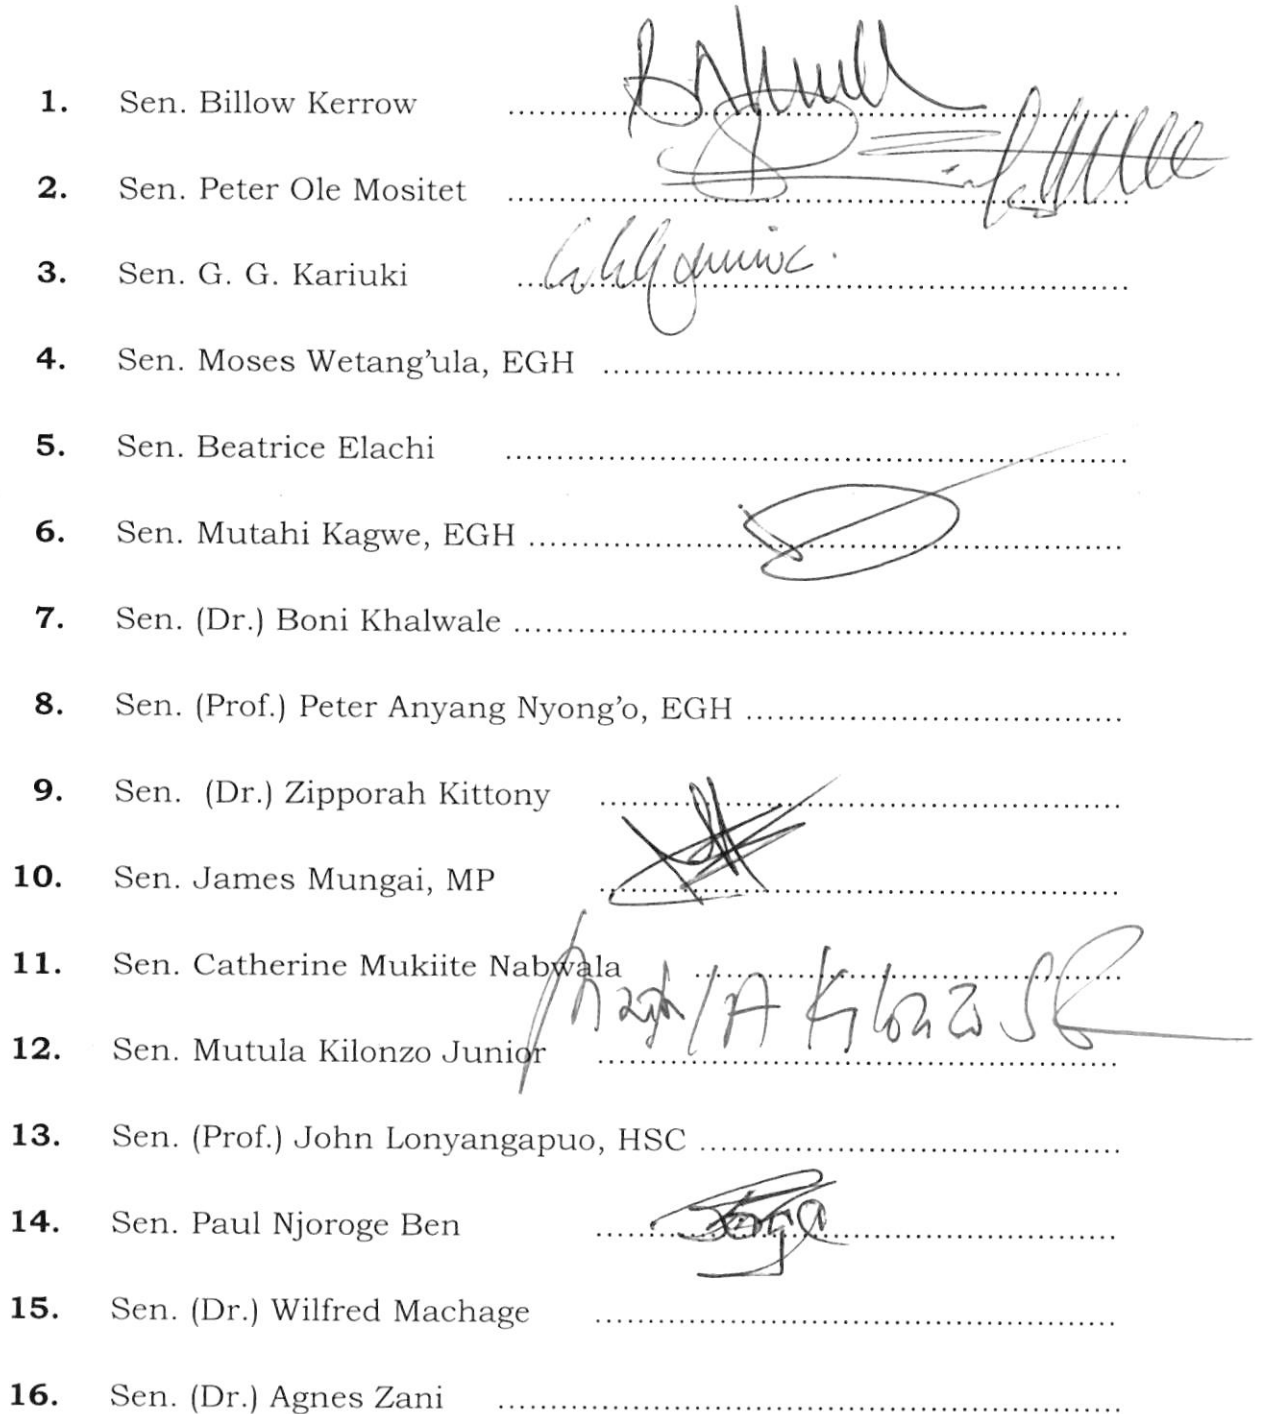 1. Sen. Billow Kerrow ............................................................
2. Sen. Peter Ole Mositet ............................................................
3. Sen. G. G. Kariuki ............................................................
4. Sen. Moses Wetang'ula, EGH ..................................................
5. Sen. Beatrice Elachi ............................................................
6. Sen. Mutahi Kagwe, EGH .........................................................
7. Sen. (Dr.) Boni Khalwale ..........................................................
8. Sen. (Prof.) Peter Anyang Nyong'o, EGH ...................................
9. Sen. (Dr.) Zipporah Kittony ..................................................
10. Sen. James Mungai, MP ..................................................
11. Sen. Catherine Mukiite Nabwala ........................................
Kilonzo
12. Sen. Mutula Kilonzo Junior ..................................................
13. Sen. (Prof.) John Lonyangapuo, HSC ........................................
14. Sen. Paul Njoroge Ben ..................................................
15. Sen. (Dr.) Wilfred Machage ..................................................
16. Sen. (Dr.) Agnes Zani ............................................................